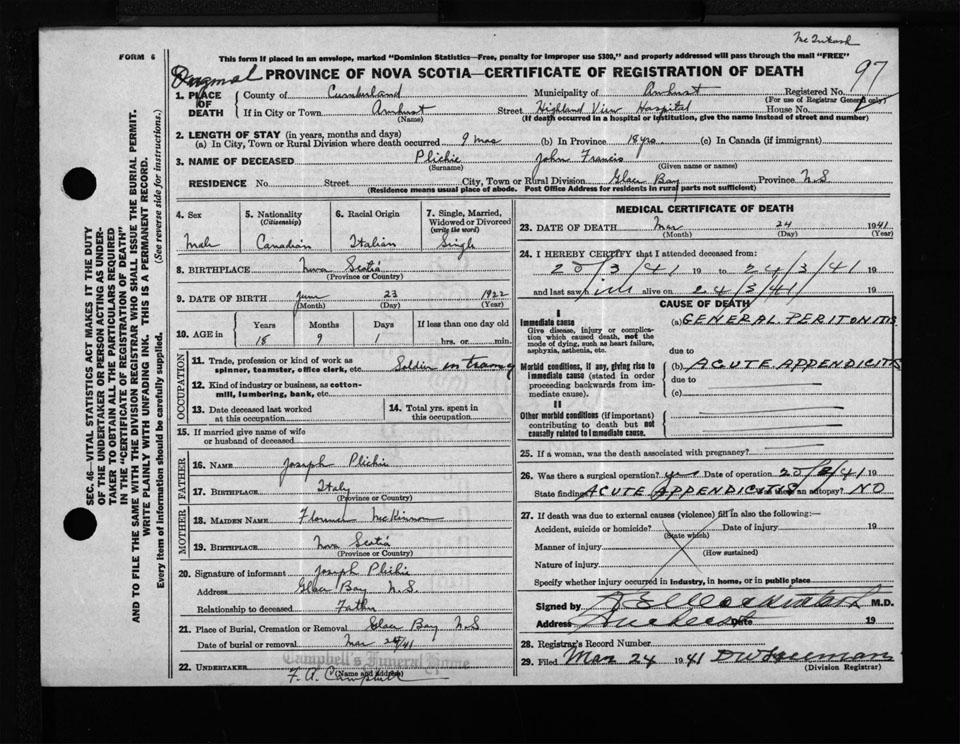 McIntosh
FORM 6
This form if placed in an envelope, marked "Dominion Statistics—Free, penalty for improper use $300," and properly addressed will pass through the mail "FREE"
Original PROVINCE OF NOVA SCOTIA—CERTIFICATE OF REGISTRATION OF DEATH 97
1. PLACE OF DEATH County of Cumberland Municipality of Amherst Registered No.
(For use of Registrar General only)
If in City or Town Amherst Street Highland View Hospital House No.
(Name) (If death occurred in a hospital or institution, give the name instead of street and number)
2. LENGTH OF STAY (in years, months and days)
(a) In City, Town or Rural Division where death occurred 9 mos (b) In Province 18 yrs (c) In Canada (if immigrant)
3. NAME OF DECEASED Plichie John Francis
(Surname) (Given name or names)
RESIDENCE No. Street City, Town or Rural Division Glace Bay Province N.S.
(Residence means usual place of abode. Post Office Address for residents in rural parts not sufficient)
4. Sex Male
5. Nationality (Citizenship) Canadian
6. Racial Origin Italian
7. Single, Married, Widowed or Divorced (write the word) Single
8. BIRTHPLACE Nova Scotia
(Province or Country)
9. DATE OF BIRTH June 23 1922
(Month) (Day) (Year)
10. AGE in Years Months Days If less than one day old
18 9 1 hrs. or min.
OCCUPATION
11. Trade, profession or kind of work as spinner, teamster, office clerk, etc. Soldier in training
12. Kind of industry or business, as cotton-mill, lumbering, bank, etc.
13. Date deceased last worked at this occupation
14. Total yrs. spent in this occupation
15. If married give name of wife or husband of deceased
FATHER
16. NAME Joseph Plichie
17. BIRTHPLACE Italy
(Province or Country)
MOTHER
18. MAIDEN NAME Florence McKinnon
19. BIRTHPLACE Nova Scotia
(Province or Country)
20. Signature of informant Joseph Plichie
Address Glace Bay N.S.
Relationship to deceased Father
21. Place of Burial, Cremation or Removal Glace Bay N.S
Date of burial or removal Mar /41
Campbell's Funeral Home
22. UNDERTAKER F. A. Campbell
(Name and address)
MEDICAL CERTIFICATE OF DEATH
23. DATE OF DEATH Mar 24 1941
(Month) (Day) (Year)
24. I HEREBY CERTIFY that I attended deceased from:
20/3/41 19 to 24/3/41 19
and last saw h im alive on 24/3/41 19
CAUSE OF DEATH
I
Immediate cause
Give disease, injury or complication which caused death, not the mode of dying, such as heart failure, asphyxia, asthenia, etc.
(a) GENERAL PERITONITIS
due to
Morbid conditions, if any, giving rise to immediate cause (stated in order proceeding backwards from immediate cause).
(b) ACUTE APPENDICITIS
due to
(c)
II
Other morbid conditions (if important) contributing to death but not causally related to immediate cause.
25. If a woman, was the death associated with pregnancy?
26. Was there a surgical operation? yes Date of operation 20/3/41 19
State findings ACUTE APPENDICITIS Was there an autopsy? NO
27. If death was due to external causes (violence) fill in also the following:—
Accident, suicide or homicide? Date of injury 19
(State which)
Manner of injury
(How sustained)
Nature of injury
Specify whether injury occurred in industry, in home, or in public place
Signed by M.D.
Address Amherst Date 19
28. Registrar's Record Number
29. Filed Mar 24 1941 D W Freeman
(Division Registrar)
SEC. 46—VITAL STATISTICS ACT MAKES IT THE DUTY
OF THE UNDERTAKER OR PERSON ACTING AS UNDER-
TAKER TO OBTAIN ALL THE PARTICULARS REQUIRED
IN THE "CERTIFICATE OF REGISTRATION OF DEATH"
AND TO FILE THE SAME WITH THE DIVISION REGISTRAR WHO SHALL ISSUE THE BURIAL PERMIT.
WRITE PLAINLY WITH UNFADING INK. THIS IS A PERMANENT RECORD.
Every item of information should be carefully supplied. (See reverse side for instructions.)